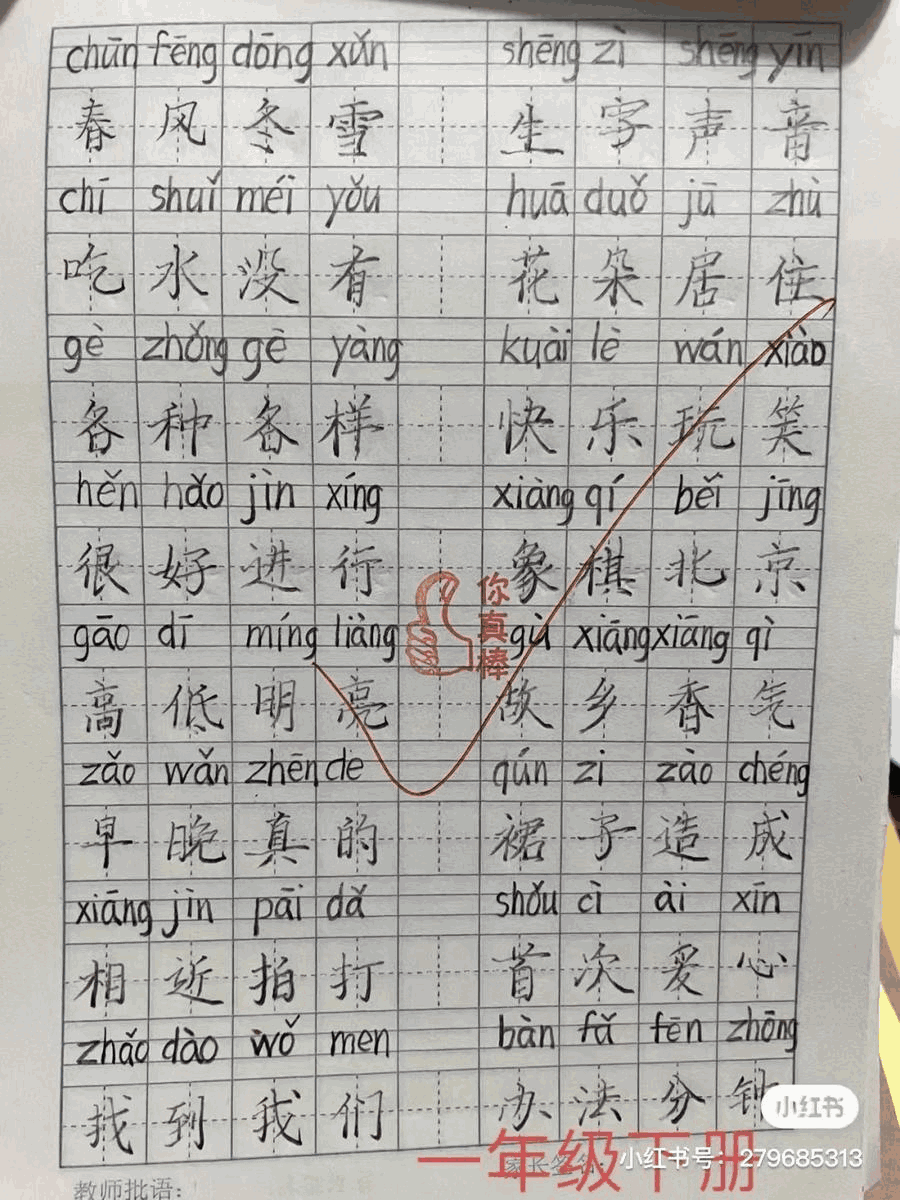 chūn fēng dōng xuě shēng zì shēng yīn
春风冬雪 生字声音
chī shuǐ méi yǒu huā duǒ jū zhù
吃水没有 花朵居住
gè zhǒng gè yàng kuài lè wán xiào
各种各样 快乐玩笑
hěn hǎo jìn xíng xiàng qí běi jīng
很好进行 象棋北京
gāo dī míng liàng gù xiāng xiāng qì
高低明亮 故乡香气
你真棒
zǎo wǎn zhēn de qún zi zào chéng
早晚真的 裙子造成
xiāng jìn pāi dǎ shǒu cì ài xīn
相近拍打 首次爱心
zhǎo dào wǒ men bàn fǎ fēn zhōng
找到我们 办法分钟
小红书
一年级下册
家长签名:
小红书号:279685313
教师批语: